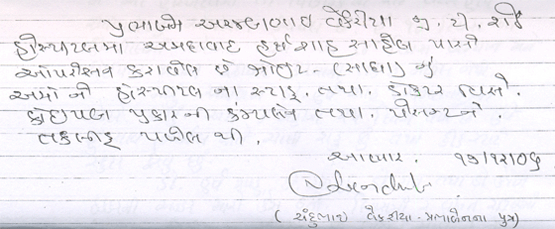 પ્રભાબેન અરજણભાઇ વેકરીયા કે. ડી. શેઠ
હોસ્પીટલમા અમદાવાદ હર્ષ શાહ સાહેબ પાસે
ઓપરેશન કરાવેલ છે જોઇન્ટ (સાંધા) નું
અમો ની હોસ્પીટલ ના સ્ટાફ. તથા. ડોકટર વિશે.
કોઇપણ પ્રકારની કંમ્પલેન તથા. પેસન્ટને.
તકલીફ પડેલ નથી.
આભાર. ૧૭/૧૨/૦૬
( ચંદુભાઇ વેકરીયા - પ્રભાબેનના પુત્ર)